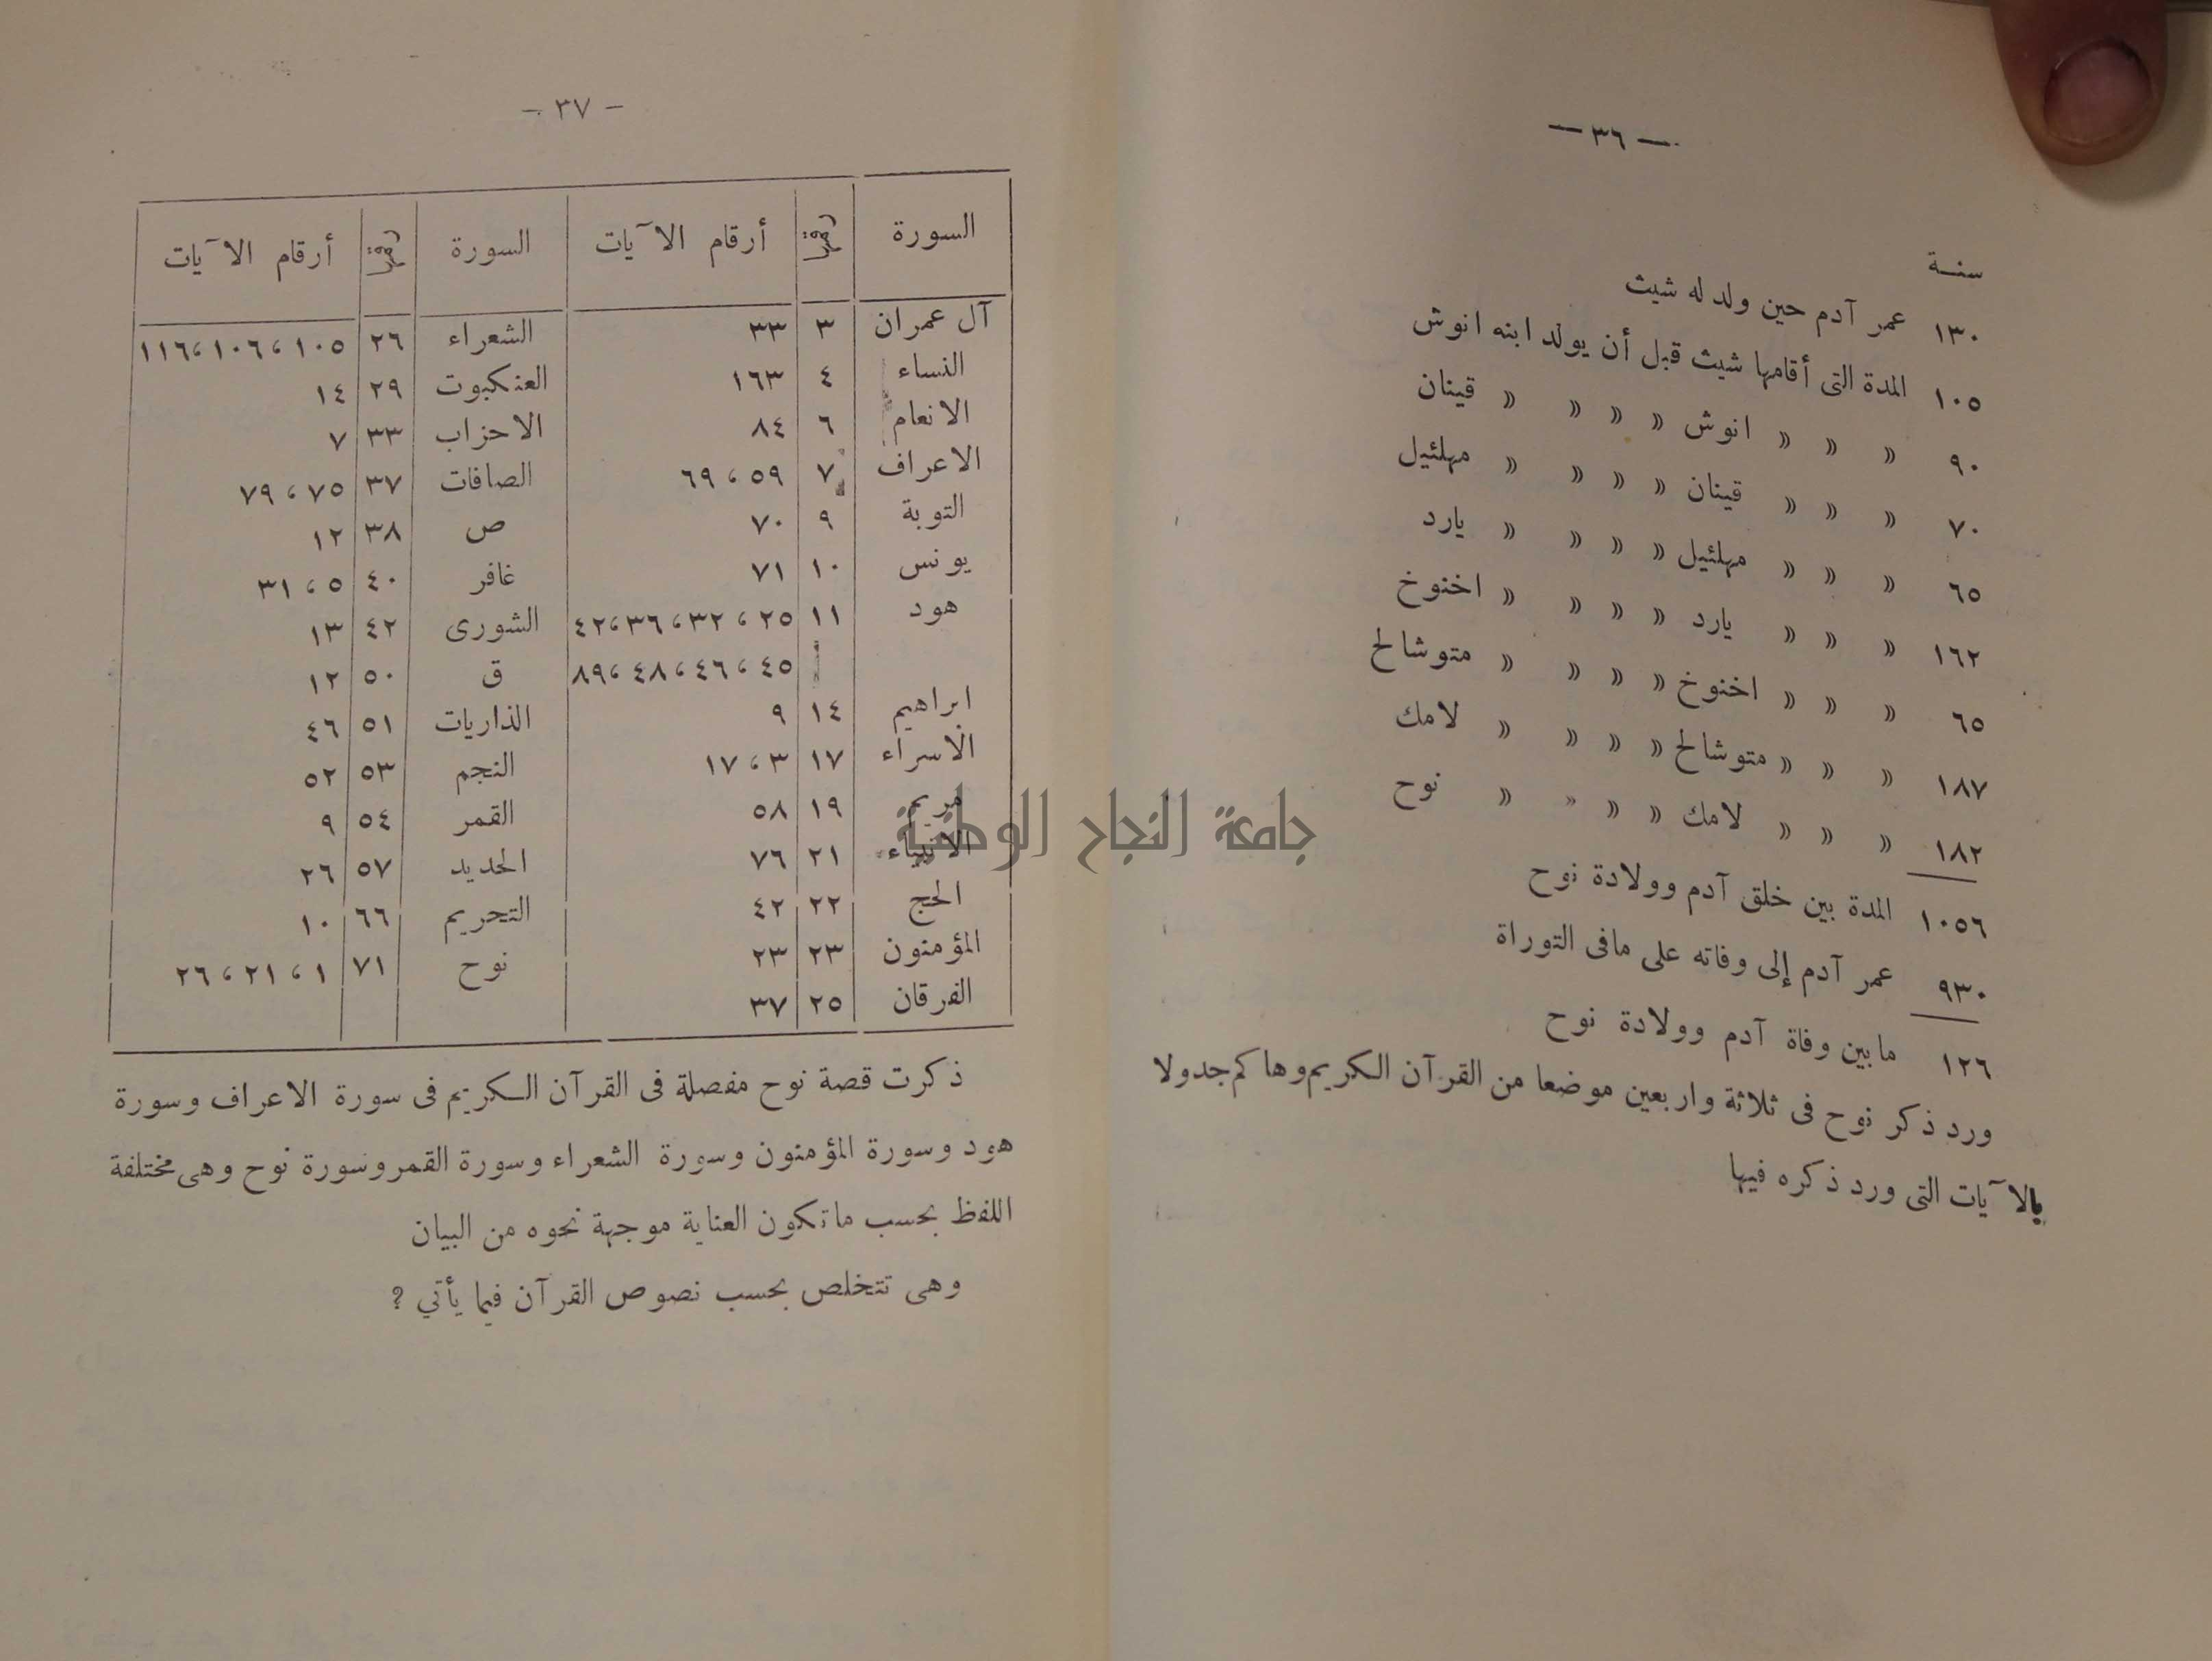 — ٣٦ —
سنة
١٣٠ عمر آدم حين ولد له شيث
١٠٥ المدة التى أقامها شيث قبل أن يولد ابنه انوش
٩٠ » » » انوش » » » » قينان
٧٠ » » » قينان » » » » مهلئيل
٦٥ » » » مهلئيل » » » » يارد
١٦٢ » » » يارد » » » » اخنوخ
٦٥ » » » اخنوخ » » » » متوشالح
١٨٧ » » » متوشالح » » » » لامك
١٨٢ » » » لامك » » » » نوح
١٠٥٦ المدة بين خلق آدم وولادة نوح
٩٣٠ عمر آدم إلى وفاته على مافى التوراة
١٢٦ مابين وفاة آدم وولادة نوح
ورد ذكر نوح فى ثلاثة واربعين موضعا من القرآن الكريم وهاكم جدولا
بالآيات التى ورد ذكره فيها
— ٣٧ —
السورة رقمها أرقام الآيات السورة رقمها أرقام الآيات
آل عمران ٣ ٣٣ الشعراء ٢٦ ١٠٥ ، ١٠٦ ، ١١٦
النساء ٤ ١٦٣ العنكبوت ٢٩ ١٤
الانعام ٦ ٨٤ الاحزاب ٣٣ ٧
الاعراف ٧ ٥٩ ، ٦٩ الصافات ٣٧ ٧٥ ، ٧٩
التوبة ٩ ٧٠ ص ٣٨ ١٢
يونس ١٠ ٧١ غافر ٤٠ ٥ ، ٣١
هود ١١ ٢٥ ، ٣٢ ، ٣٦ ، ٤٢ الشورى ٤٢ ١٣
٤٥ ، ٤٦ ، ٤٨ ، ٨٩ ق ٥٠ ١٢
ابراهيم ١٤ ٩ الذاريات ٥١ ٤٦
الاسراء ١٧ ٣ ، ١٧ النجم ٥٣ ٥٢
مريم ١٩ ٥٨ القمر ٥٤ ٩
الانبياء ٢١ ٧٦ الحديد ٥٧ ٢٦
الحج ٢٢ ٤٢ التحريم ٦٦ ١٠
المؤمنون ٢٣ ٢٣ نوح ٧١ ١ ، ٢١ ، ٢٦
الفرقان ٢٥ ٣٧
ذكرت قصة نوح مفصلة فى القرآن الكريم فى سورة الاعراف وسورة
هود وسورة المؤمنون وسورة الشعراء وسورة القمر وسورة نوح وهى مختلفة
اللفظ بحسب ماتكون العناية موجهة نحوه من البيان
وهى تتخلص بحسب نصوص القرآن فيما يأتي ؟
جامعة النجاح الوطنية